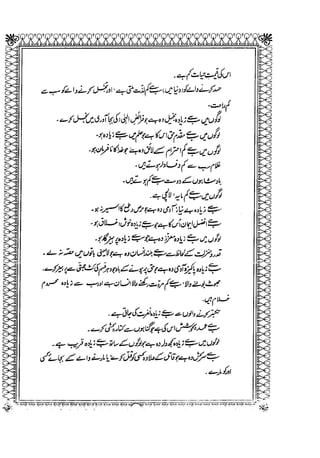 اس کی قیمت نہایت کم ہے ۔
حسد کرنے والے کو (دنیا میں) سب سے کم لذت ملتی ہے ، اور بخل کرنے والے کو سب سے
کم راحت۔
لوگوں میں سب سے زیادہ بخیل وہ ہے جو فرائض الہٰی کی بجا آوری میں بخل کرے ۔
لوگوں میں سب سے مقدم حق اس کا ہے جو علم میں سب سے زیادہ ہو۔
لوگوں میں سب سے کم احترام کے لائق وہ ہے جو خدا کا نافرمان ہو۔
غلام سب سے کم وفادار ہوتے ہیں۔
بادشاہوں کے دوست سب سے کم ہوتے ہیں۔
لوگوں میں سب سے کم مایہ لالچی ہے ۔
سب سے زیادہ بے نیاز آدمی وہ ہے جو حرص و طمع کا اسیر نہ ہو۔
سب سے افضل ایمان اس کا ہے جو سب سے زیادہ خوش اخلاق ہو۔
لوگوں میں سب سے زیادہ معزز وہ ہے جو سب سے زیادہ پرہیزگار ہو۔
قدر و منزلت کے لحاظ سے سب سے بلند انسان وہ ہے جو لایعنی باتوں میں حصہ نہ لے ۔
سب سے زیادہ پاکیزہ آدمی وہ ہے جو حق پر ہونے کے باوجود ہر قسم کی کٹ حجتی سے پرہیز کرے۔
جھوٹ بولنے والا ، سب سے کم مروت رکھنے والا انسان ہے اور سب سے زیادہ محروم
غلام ہیں۔
تکبر کرنے والوں سے سب سے زیادہ نفرت کی جاتی ہے ۔
سب سے عمدہ کوشش اس کی ہے جو گناہوں سے کنارہ کشی کرے۔
لوگوں میں سب سے زیادہ سمجھدار وہ ہے جو لوگوں کے ساتھ سب سے زیادہ قریب ہے ۔
سب سے سرکش وہ ہے جو قاتل کے علاوہ کسی کو قتل کرے یا مارنے والے کے بجائے کسی
اور کو مارے ۔